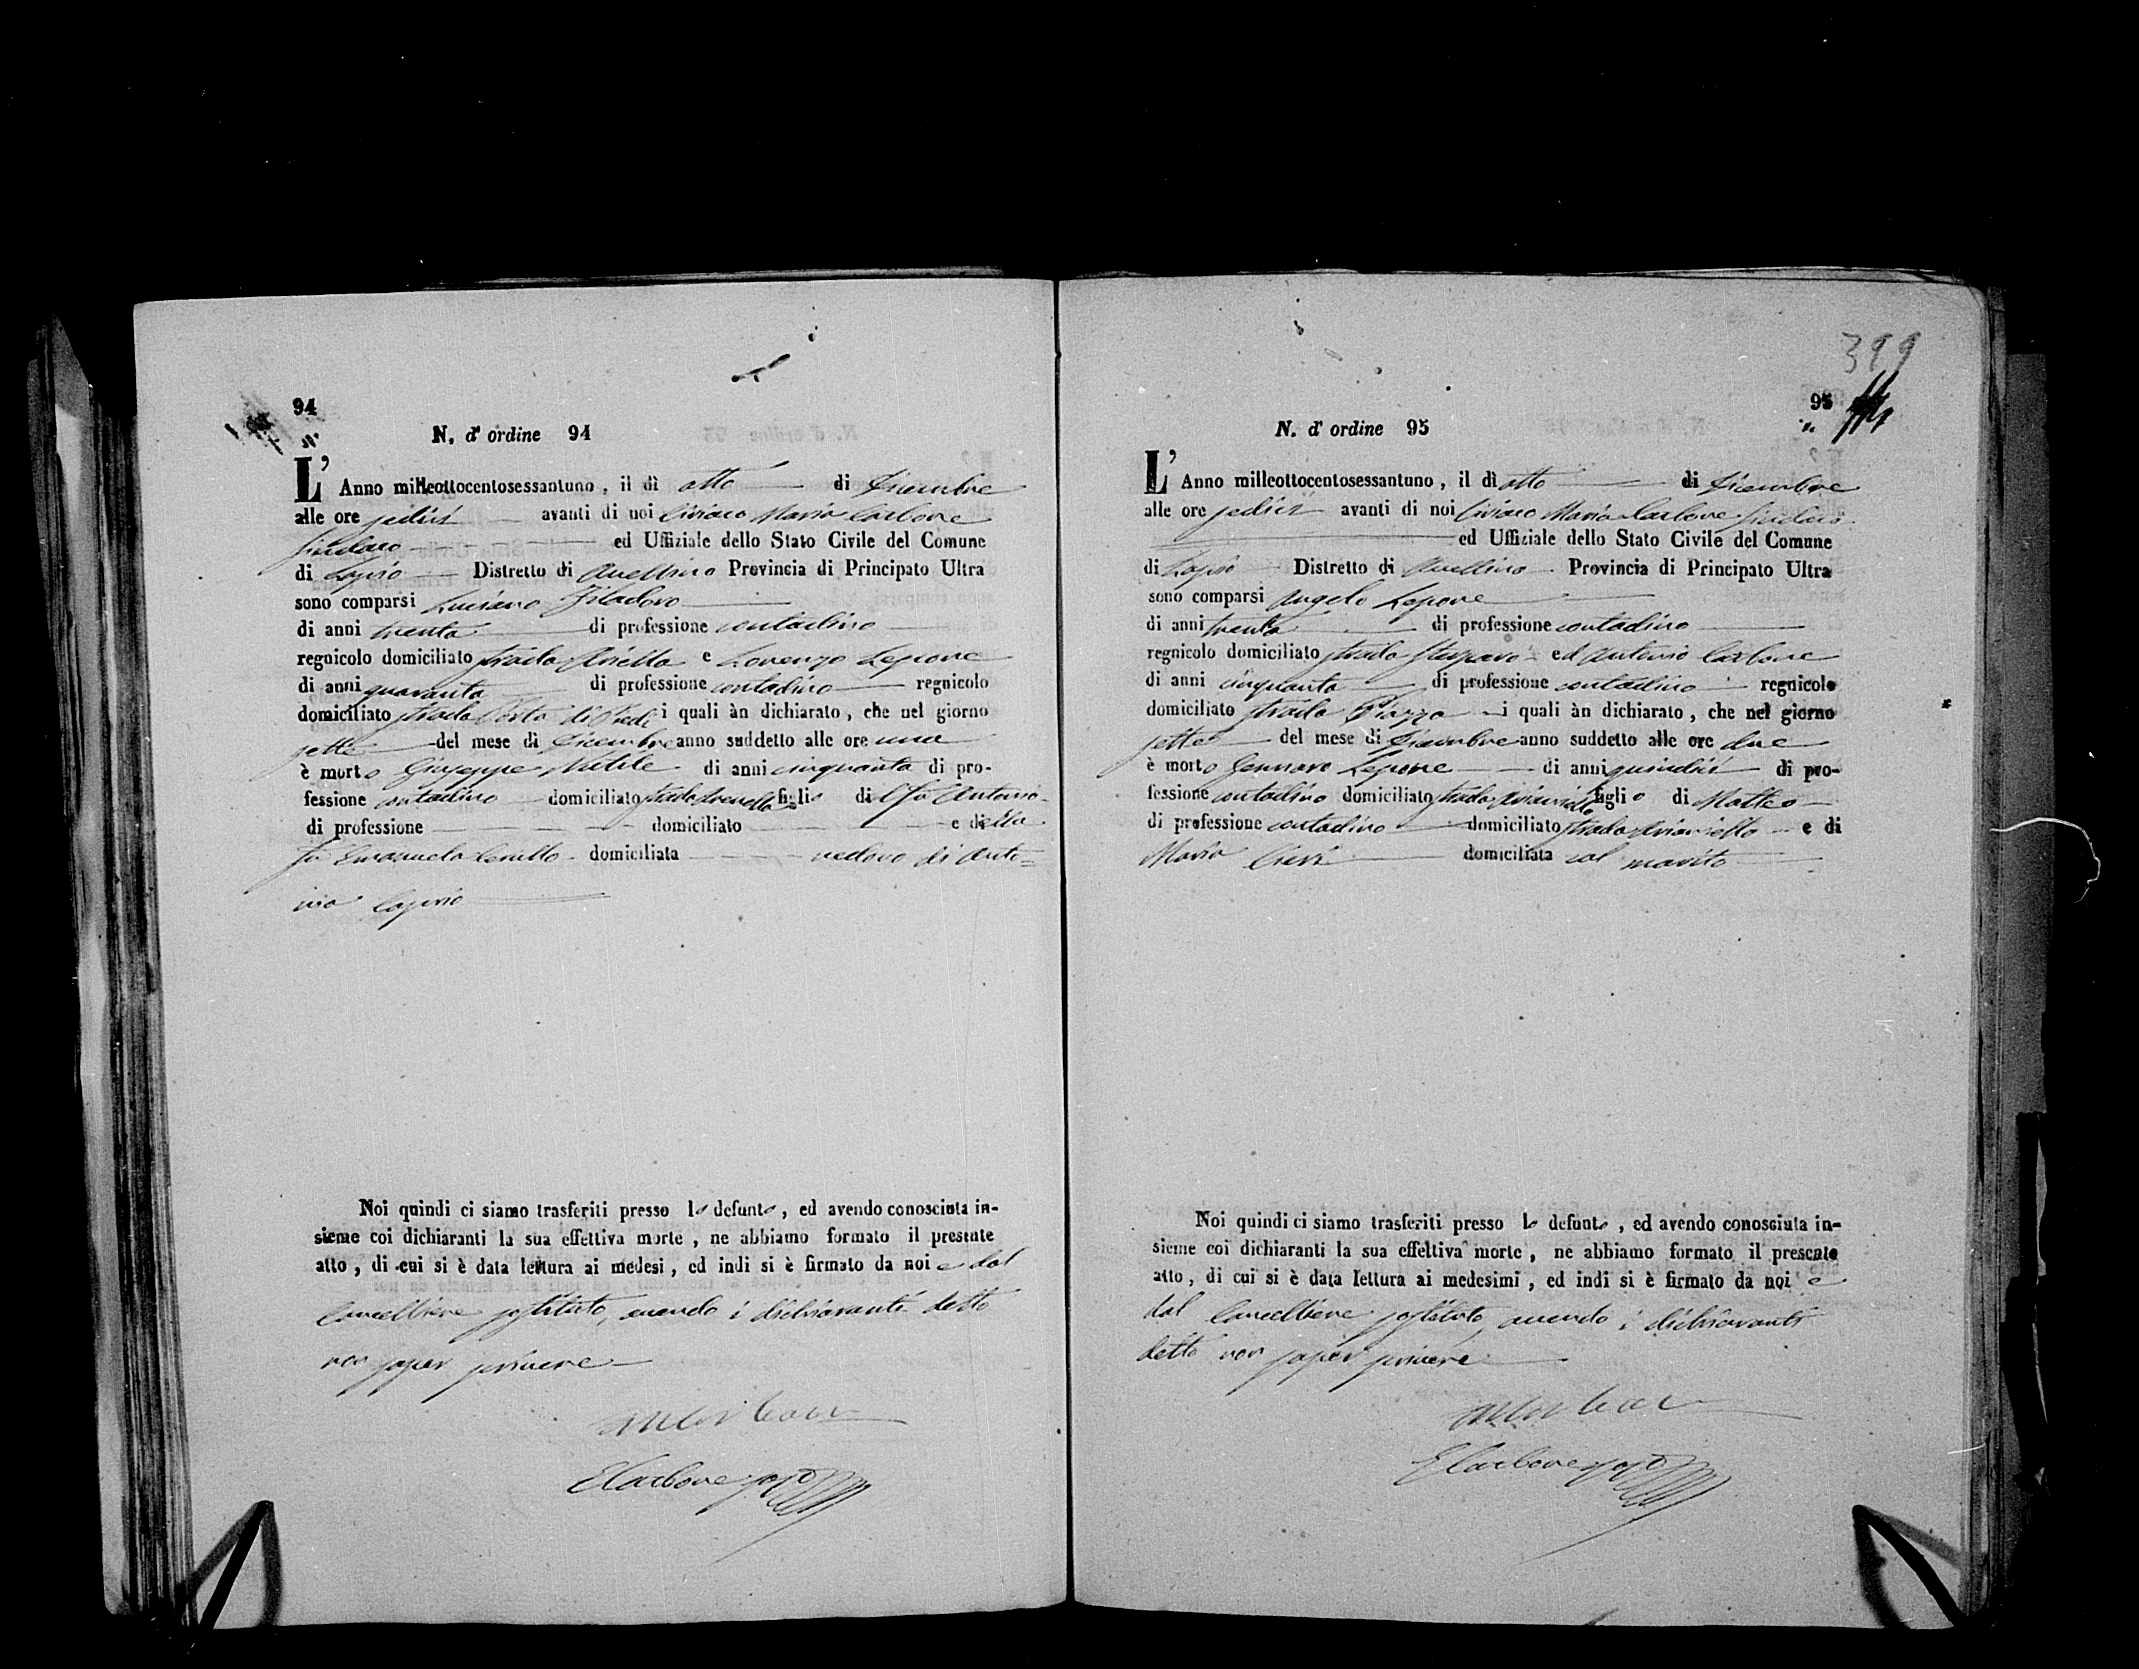 94
N. d' ordine 94
L' Anno milleottocentosessantuno, il dì otto di Dicembre
alle ore sedici avanti di noi Ciriaco Maria Carbone
Sindaco ed Uffiziale dello Stato Civile del Comune
di Lapio Distretto di Avellino Provincia di Principato Ultra
sono comparsi Luciano
di anni trenta di professione contadino
regnicolo domiciliato strada e Lorenzo Lepore
di anni quaranta di professione contadino regnicolo
domiciliato strada Porta di i quali àn dichiarato, che nel giorno
sette del mese di Dicembre anno suddetto alle ore una
è morto Giuseppe di anni cinquanta di pro-
fessione contadino domiciliato strada figlio di fu Antonio
di professione domiciliato e della
fu Emanuela domiciliata vedovo di Anto=
nia
Noi quindi ci siamo trasferiti presso lo defunto, ed avendo conosciuta in-
sieme coi dichiaranti la sua effettiva morte, ne abbiamo formato il presente
atto, di cui si è data lettura ai medesi, ed indi si è firmato da noi e dal
Cancelliere sostituto, avendo i dichiaranti detto
non saper scrivere
ECarbone
399
95
N. d' ordine 95
L' Anno milleottocentosessantuno, il dì otto di Dicembre
alle ore sedici avanti di noi Ciriaco Maria Carbone Sindaco
ed Uffiziale dello Stato Civile del Comune
di Lapio Distretto di Avellino Provincia di Principato Ultra
sono comparsi Angelo Lepore
di anni trenta di professione contadino
regnicolo domiciliato strada ed Antonio Carbone
di anni cinquanta di professione contadino regnicolo
domiciliato strada Piazza i quali àn dichiarato, che nel giorno
sette del mese di Dicembre anno suddetto alle ore due
è morto Gennaro Lepore di anni quindici di pro-
fessione contadino domiciliato strada figlio di Matteo
di professione contadino domiciliato strada e di
Maria domiciliata col marito
Noi quindi ci siamo trasferiti presso lo defunto, ed avendo conosciuta in-
sieme coi dichiaranti la sua effettiva morte, ne abbiamo formato il presente
atto, di cui si è data lettura ai medesimi, ed indi si è firmato da noi e
dal Cancelliere sostituto, avendo i dichiaranti
detto non saper scrivere
ECarbone